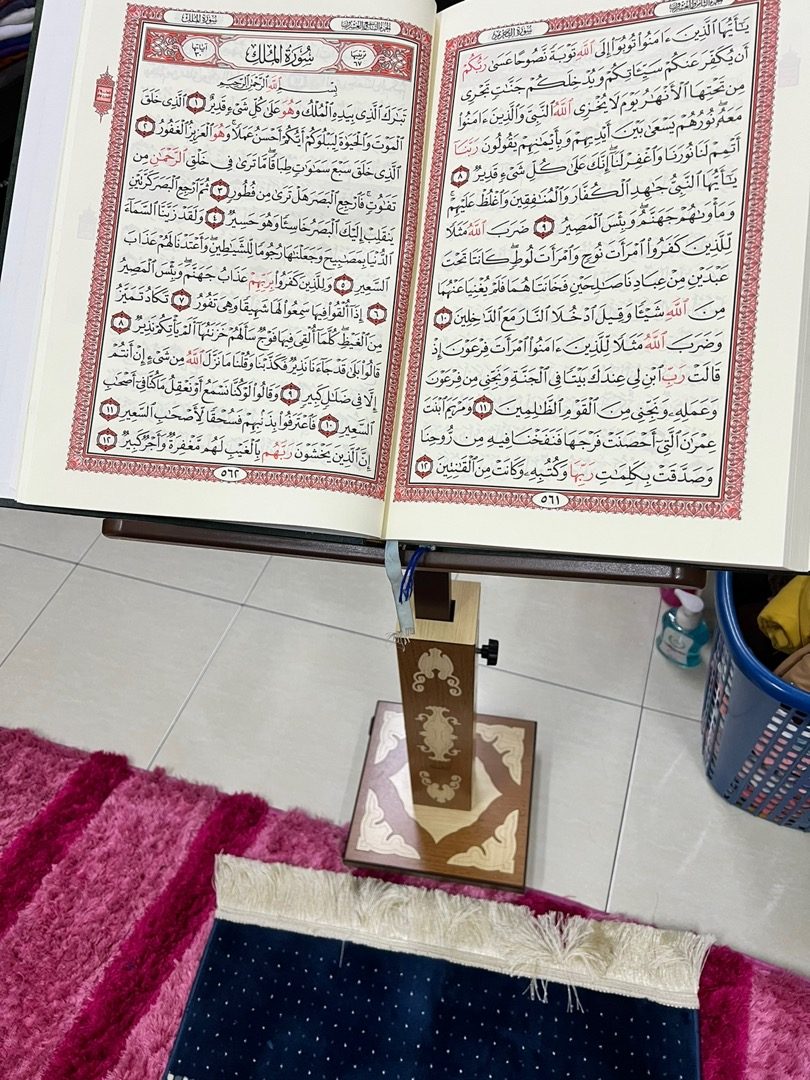 الجزء الثامن والعشرون
سُورَةُ التَّحْرِيمِ
يَٰٓأَيُّهَا ٱلَّذِينَ ءَامَنُوا۟ تُوبُوٓا۟ إِلَى ٱللَّهِ تَوْبَةً نَّصُوحًا عَسَىٰ رَبُّكُمْ
أَن يُكَفِّرَ عَنكُمْ سَيِّـَٔاتِكُمْ وَيُدْخِلَكُمْ جَنَّٰتٍ تَجْرِى
مِن تَحْتِهَا ٱلْأَنْهَٰرُ يَوْمَ لَا يُخْزِى ٱللَّهُ ٱلنَّبِىَّ وَٱلَّذِينَ ءَامَنُوا۟
مَعَهُۥ ۖ نُورُهُمْ يَسْعَىٰ بَيْنَ أَيْدِيهِمْ وَبِأَيْمَٰنِهِمْ يَقُولُونَ رَبَّنَآ
أَتْمِمْ لَنَا نُورَنَا وَٱغْفِرْ لَنَآ ۖ إِنَّكَ عَلَىٰ كُلِّ شَىْءٍ قَدِيرٌ ٨
يَٰٓأَيُّهَا ٱلنَّبِىُّ جَٰهِدِ ٱلْكُفَّارَ وَٱلْمُنَٰفِقِينَ وَٱغْلُظْ عَلَيْهِمْ ۚ
وَمَأْوَىٰهُمْ جَهَنَّمُ ۖ وَبِئْسَ ٱلْمَصِيرُ ٩ ضَرَبَ ٱللَّهُ مَثَلًا
لِّلَّذِينَ كَفَرُوا۟ ٱمْرَأَتَ نُوحٍ وَٱمْرَأَتَ لُوطٍ ۖ كَانَتَا تَحْتَ
عَبْدَيْنِ مِنْ عِبَادِنَا صَٰلِحَيْنِ فَخَانَتَاهُمَا فَلَمْ يُغْنِيَا عَنْهُمَا
مِنَ ٱللَّهِ شَيْـًٔا وَقِيلَ ٱدْخُلَا ٱلنَّارَ مَعَ ٱلدَّٰخِلِينَ ١٠
وَضَرَبَ ٱللَّهُ مَثَلًا لِّلَّذِينَ ءَامَنُوا۟ ٱمْرَأَتَ فِرْعَوْنَ إِذْ
قَالَتْ رَبِّ ٱبْنِ لِى عِندَكَ بَيْتًا فِى ٱلْجَنَّةِ وَنَجِّنِى مِن فِرْعَوْنَ
وَعَمَلِهِۦ وَنَجِّنِى مِنَ ٱلْقَوْمِ ٱلظَّٰلِمِينَ ١١ وَمَرْيَمَ ٱبْنَتَ
عِمْرَٰنَ ٱلَّتِىٓ أَحْصَنَتْ فَرْجَهَا فَنَفَخْنَا فِيهِ مِن رُّوحِنَا
وَصَدَّقَتْ بِكَلِمَٰتِ رَبِّهَا وَكُتُبِهِۦ وَكَانَتْ مِنَ ٱلْقَٰنِتِينَ ١٢
٥٦١
الجزء التاسع والعشرون
سُورَةُ المُلْكِ
ترتيبها ٦٧
سُورَةُ المُلْكِ
آياتها ٣٠
بِسْمِ ٱللَّهِ ٱلرَّحْمَٰنِ ٱلرَّحِيمِ
تَبَٰرَكَ ٱلَّذِى بِيَدِهِ ٱلْمُلْكُ وَهُوَ عَلَىٰ كُلِّ شَىْءٍ قَدِيرٌ ١ ٱلَّذِى خَلَقَ
ٱلْمَوْتَ وَٱلْحَيَوٰةَ لِيَبْلُوَكُمْ أَيُّكُمْ أَحْسَنُ عَمَلًا ۚ وَهُوَ ٱلْعَزِيزُ ٱلْغَفُورُ ٢
ٱلَّذِى خَلَقَ سَبْعَ سَمَٰوَٰتٍ طِبَاقًا ۖ مَّا تَرَىٰ فِى خَلْقِ ٱلرَّحْمَٰنِ مِن
تَفَٰوُتٍ ۖ فَٱرْجِعِ ٱلْبَصَرَ هَلْ تَرَىٰ مِن فُطُورٍ ٣ ثُمَّ ٱرْجِعِ ٱلْبَصَرَ كَرَّتَيْنِ
يَنقَلِبْ إِلَيْكَ ٱلْبَصَرُ خَاسِئًا وَهُوَ حَسِيرٌ ٤ وَلَقَدْ زَيَّنَّا ٱلسَّمَآءَ
ٱلدُّنْيَا بِمَصَٰبِيحَ وَجَعَلْنَٰهَا رُجُومًا لِّلشَّيَٰطِينِ ۖ وَأَعْتَدْنَا لَهُمْ عَذَابَ
ٱلسَّعِيرِ ٥ وَلِلَّذِينَ كَفَرُوا۟ بِرَبِّهِمْ عَذَابُ جَهَنَّمَ ۖ وَبِئْسَ ٱلْمَصِيرُ
٦ إِذَآ أُلْقُوا۟ فِيهَا سَمِعُوا۟ لَهَا شَهِيقًا وَهِىَ تَفُورُ ٧ تَكَادُ تَمَيَّزُ
مِنَ ٱلْغَيْظِ ۖ كُلَّمَآ أُلْقِىَ فِيهَا فَوْجٌ سَأَلَهُمْ خَزَنَتُهَآ أَلَمْ يَأْتِكُمْ نَذِيرٌ ٨
قَالُوا۟ بَلَىٰ قَدْ جَآءَنَا نَذِيرٌ فَكَذَّبْنَا وَقُلْنَا مَا نَزَّلَ ٱللَّهُ مِن شَىْءٍ إِنْ أَنتُمْ
إِلَّا فِى ضَلَٰلٍ كَبِيرٍ ٩ وَقَالُوا۟ لَوْ كُنَّا نَسْمَعُ أَوْ نَعْقِلُ مَا كُنَّا فِىٓ أَصْحَٰبِ
ٱلسَّعِيرِ ١٠ فَٱعْتَرَفُوا۟ بِذَنۢبِهِمْ فَسُحْقًا لِّأَصْحَٰبِ ٱلسَّعِيرِ ١١
إِنَّ ٱلَّذِينَ يَخْشَوْنَ رَبَّهُم بِٱلْغَيْبِ لَهُم مَّغْفِرَةٌ وَأَجْرٌ كَبِيرٌ ١٢
٥٦٢